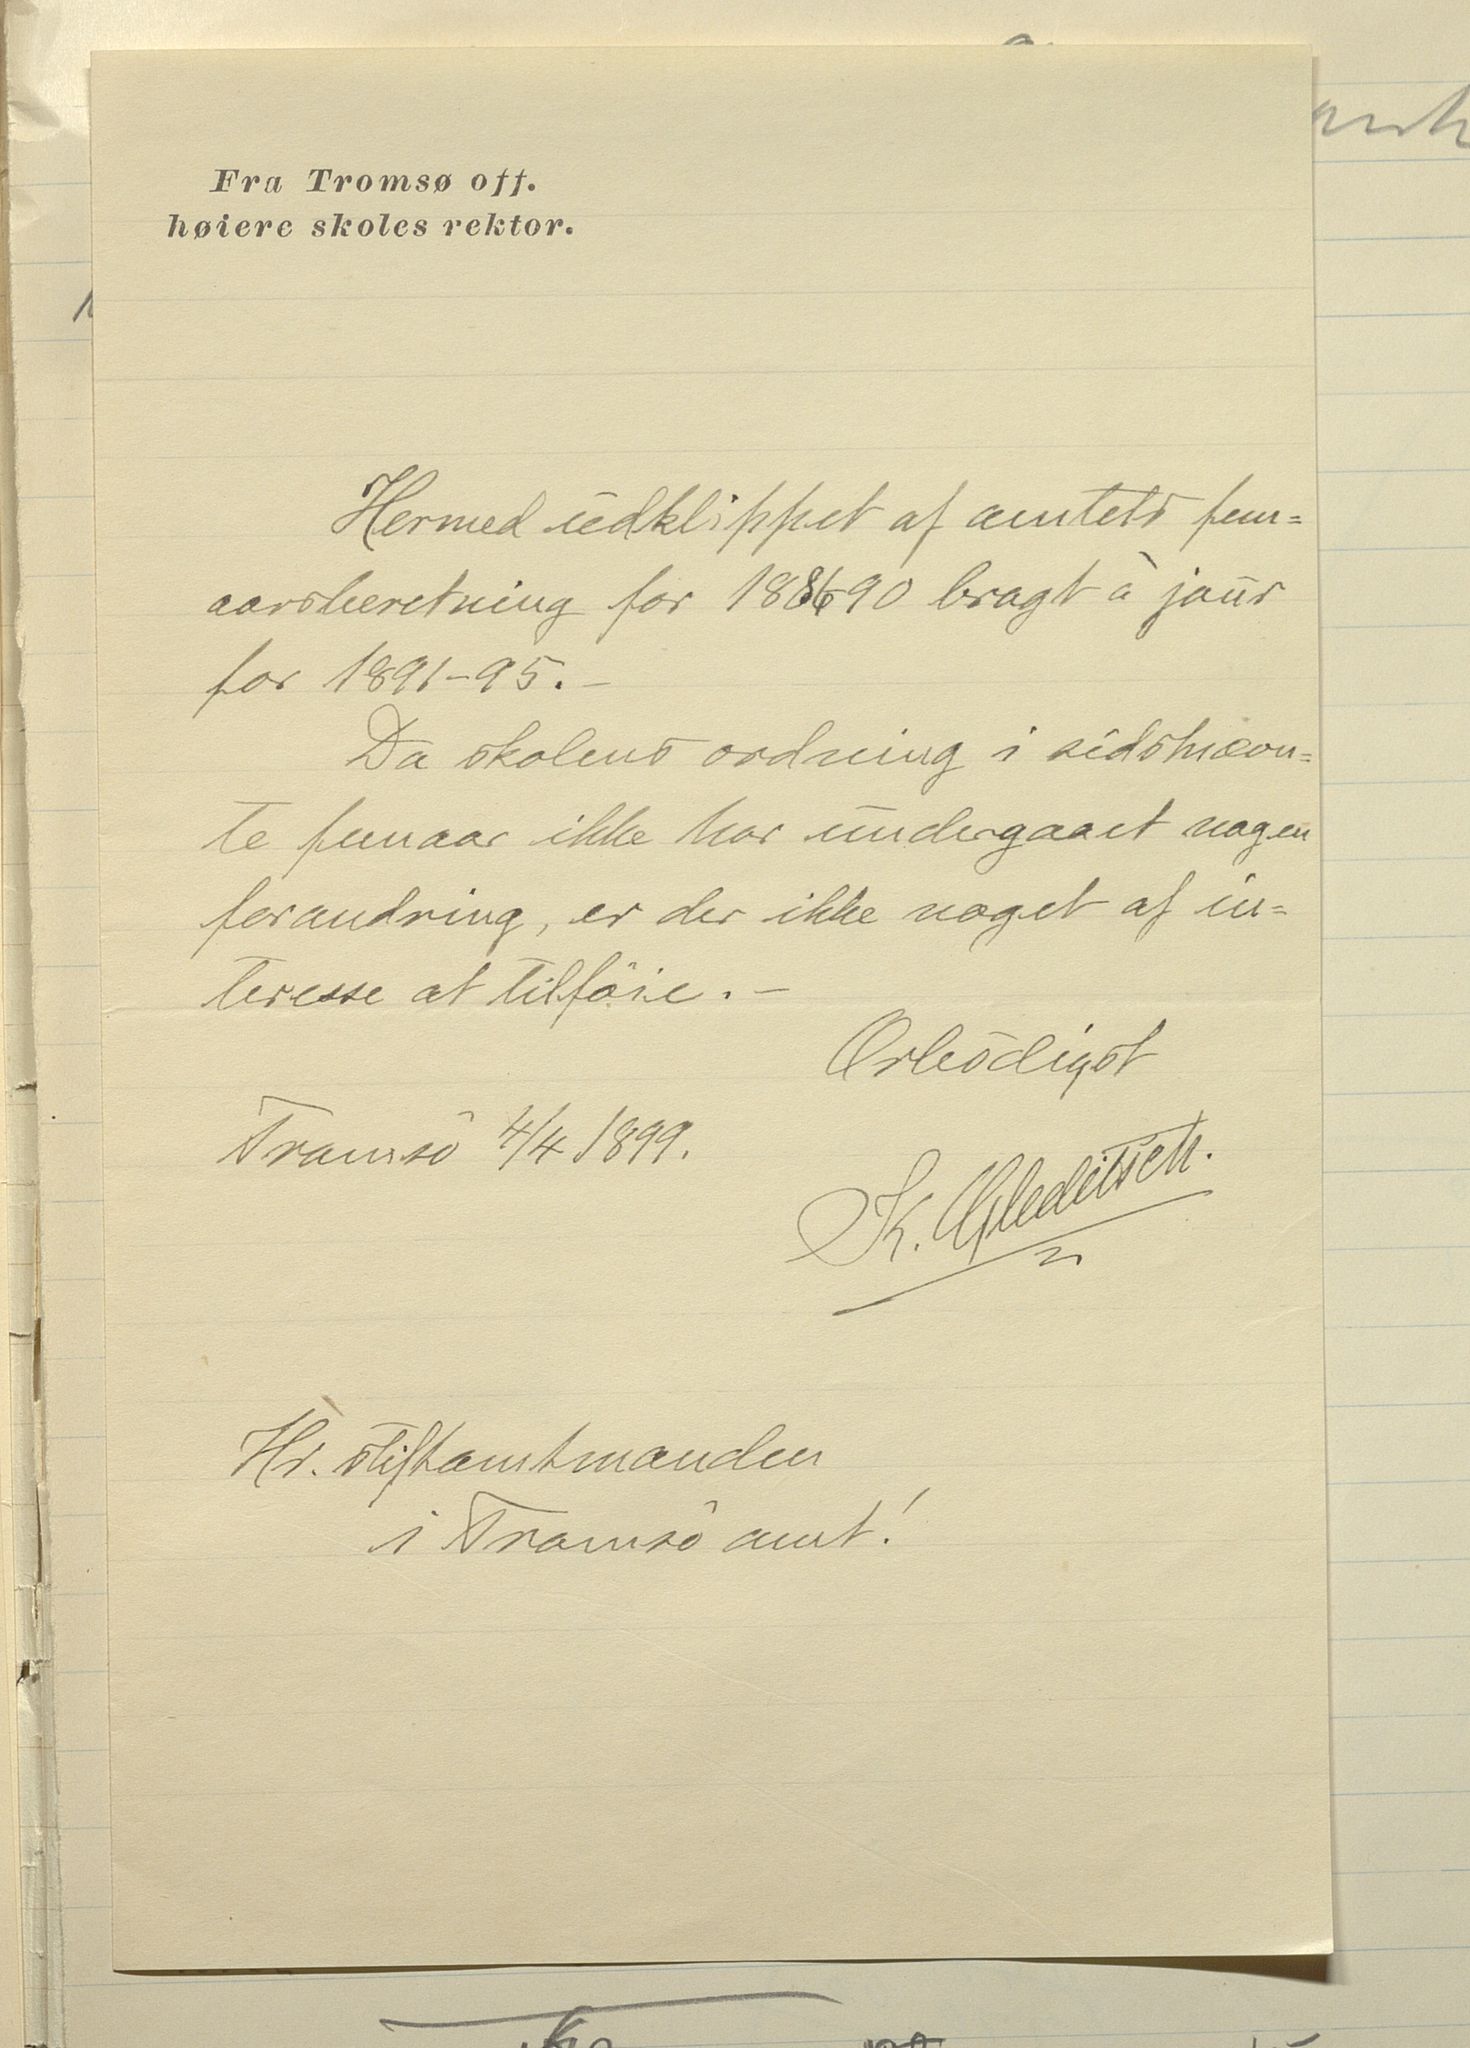 Fra Tromsø off.
høiere skoles rektor.
Hermed udklippet af amtets fem=
aarsberetning for 1886-90 bragt à jour
for 1891-95.–
Da skolens ordning i sidstnævn=
te femaar ikke har undergaaet nogen
forandring, er der ikke noget af in=
teresse at tilföie.–
Ærbödigst
Tromsö 4/4 1899.
K. Gleditsch.
Hr. stiftamtmanden
i Tromsö amt!